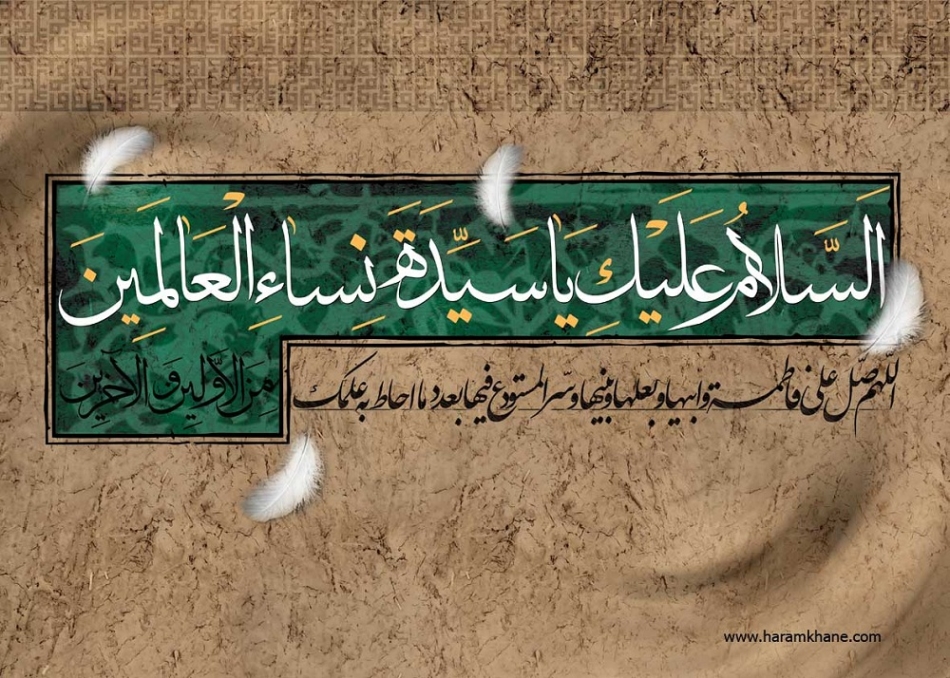 اَلسَّلامُ عَلَيْكِ يا سَيِّدَةَ نِساءِ الْعالَمينَ
مِنَ الاَوَّلينَ وَ الآخِرينَ
اللهم صل علی فاطمة و ابیها و بعلها و بنیها و سر المستودع فیها بعدد ما احاط به علمک
www.haramkhane.com